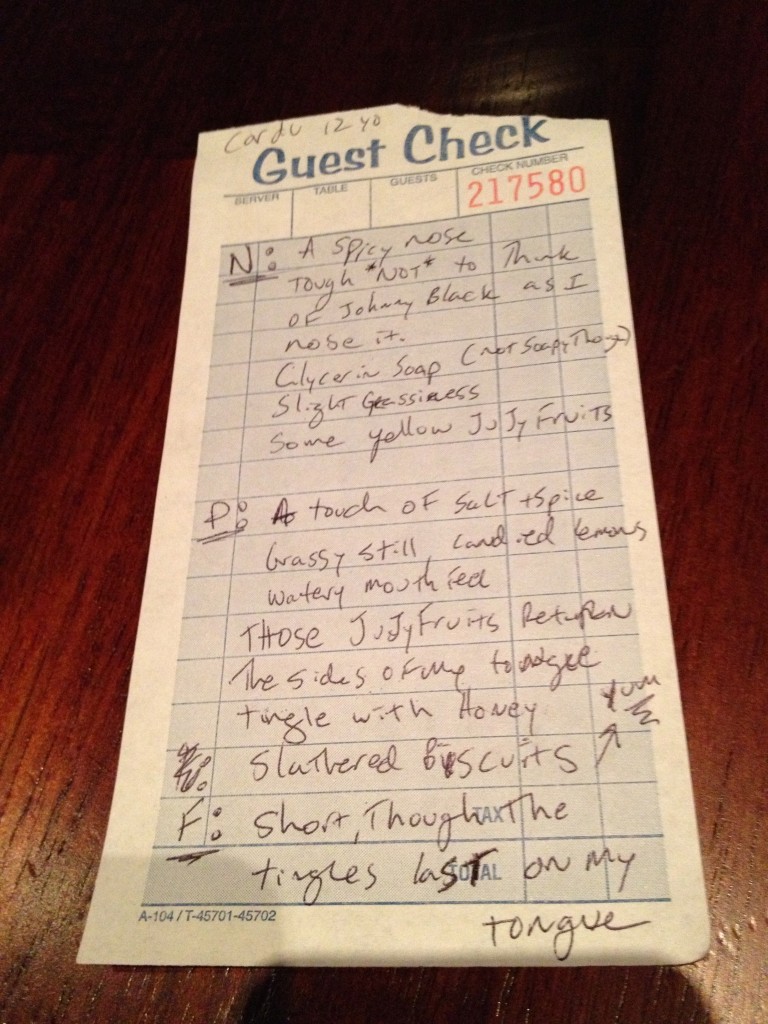 Cardu 12 yo
Guest Check
SERVER TABLE GUESTS CHECK NUMBER
217580
N: A Spicy nose
Tough *NOT* to Think
of Johnny Black as I
nose it.
Glycerin Soap (not soapy Though)
Slight Grassiness
Some yellow JuJyFruits
P: A touch of Salt + Spice
Grassy still, candied lemons
watery mouth feel
THOSE JuJyFruits Return
The sides of my tongue
tingle with Honey yum
Slathered Biscuits
F: Short, Though The
TAX
tingles last on my
TOTAL
tongue
A-104 / T-45701-45702